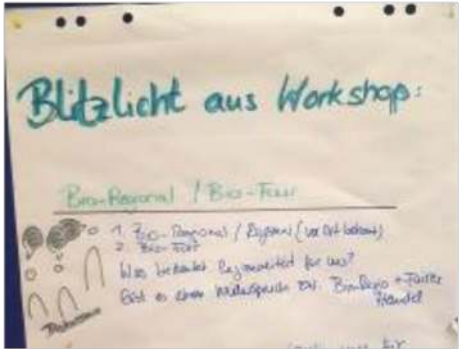 Blitzlicht aus Workshop:
Bio-Regional / Bio-Fair
1. Bio-Regional / (vor Ort bekannt)
2. Bio-Fair
Was bedeutet Regionalität für uns?
Gibt es einen Widerspruch zw. Bio-Regio + Fairer
Handel